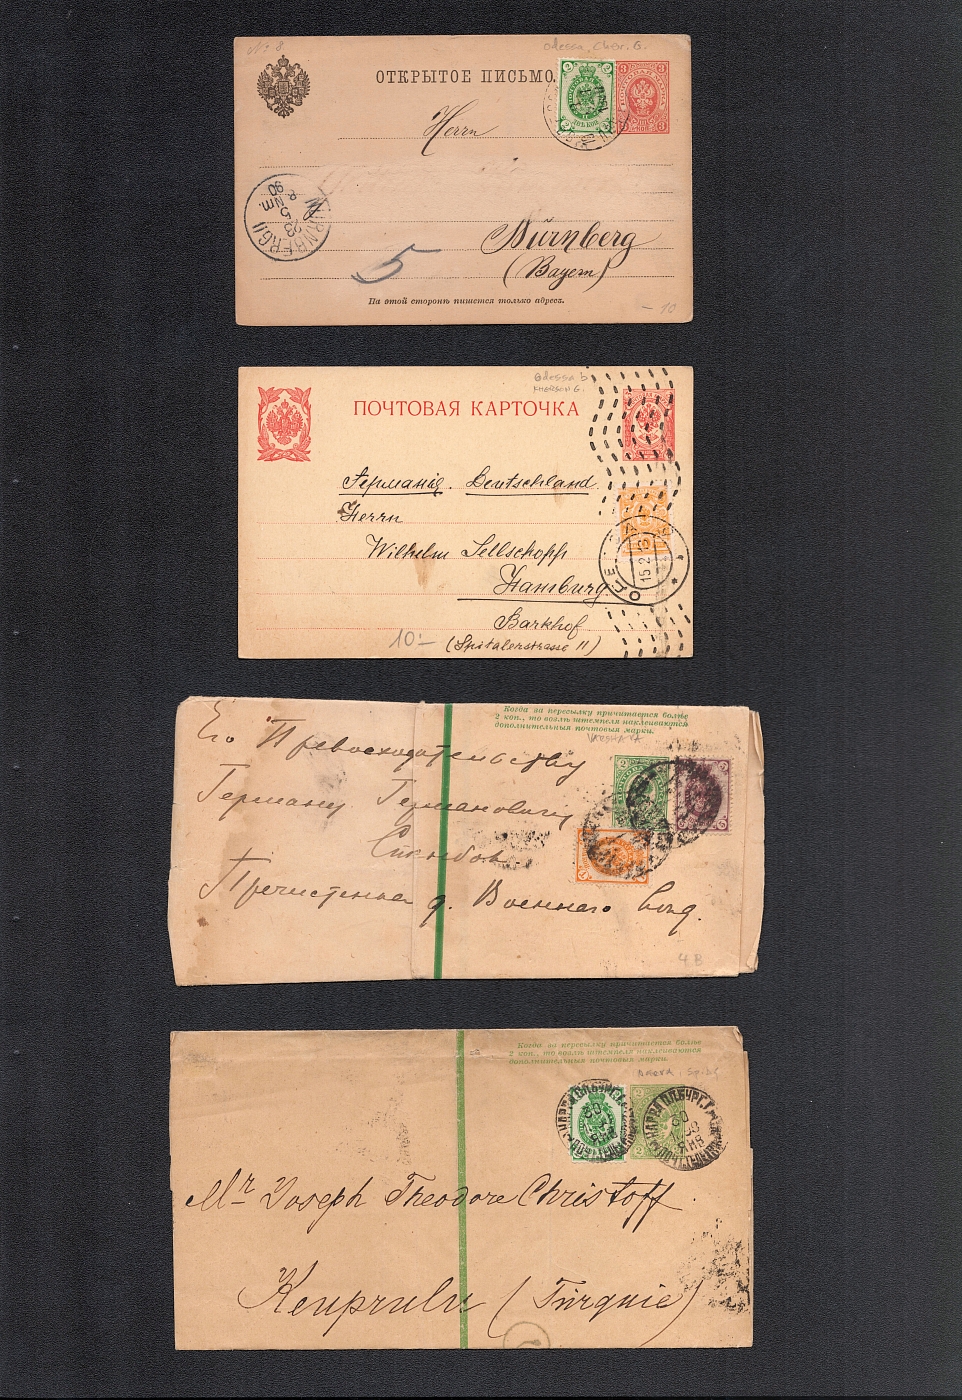 № 8
Odessa, Cher. G.
ОТКРЫТОЕ ПИСЬМО.
2
3
3
Herrn
NÜRNBERG II
23
5
NM.
90
5
Nürnberg
(Bayern)
На этой сторонѣ пишется только адресъ.
- 10
Odessa b
KHERSON G.
ПОЧТОВАЯ КАРТОЧКА
Германія. Deutschland
Herrn
Wilhelm Sellschopp
Hamburg
15 2 13
Barkhof
10 -
(Spitalerstrasse 11)
Когда за пересылку причитается болѣе
2 коп., то возлѣ штемпеля наклеиваются
дополнительныя почтовыя марки.
VARSHAVA
Его Превосходительству
Герману Германовичу
Пречистенка д. Военнаго вѣд.
4 B
Когда за пересылку причитается болѣе
2 коп., то возлѣ штемпеля наклеиваются
дополнительныя почтовыя марки.
Narva, Sp.bg
НАРВА С.П.БУРГ.Г.
НАРВА С.П.БУРГ.Г.
Mr Joseph Theodore Christoff
Keuprulu (Turquie)